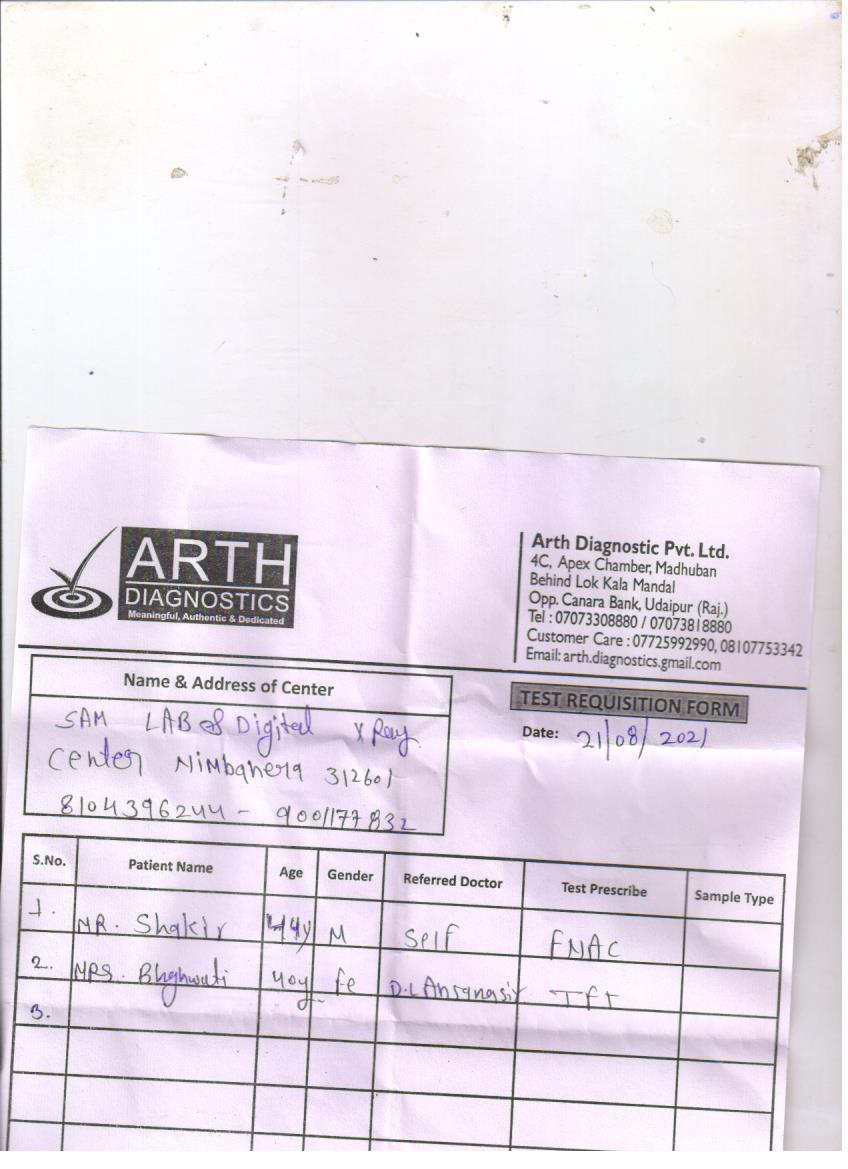 ARTH
DIAGNOSTICS
Meaningful, Authentic & Dedicated
Arth Diagnostic Pvt. Ltd.
4C, Apex Chamber, Madhuban
Behind Lok Kala Mandal
Opp. Canara Bank, Udaipur (Raj.)
Tel : 07073308880 / 07073818880
Customer Care : 07725992990, 08107753342
Email: arth.diagnostics.gmail.com
Name & Address of Center
SAM LAB & Digital X Ray
Center Nimbahera 312601
8104396244 - 9001177832
TEST REQUISITION FORM
Date: 21/08/2021
S.No. Patient Name Age Gender Referred Doctor Test Prescribe Sample Type
1. MR. Shakir 44y M Self FNAC
2. MRS. Bhghwati 40y fe TFT
3.